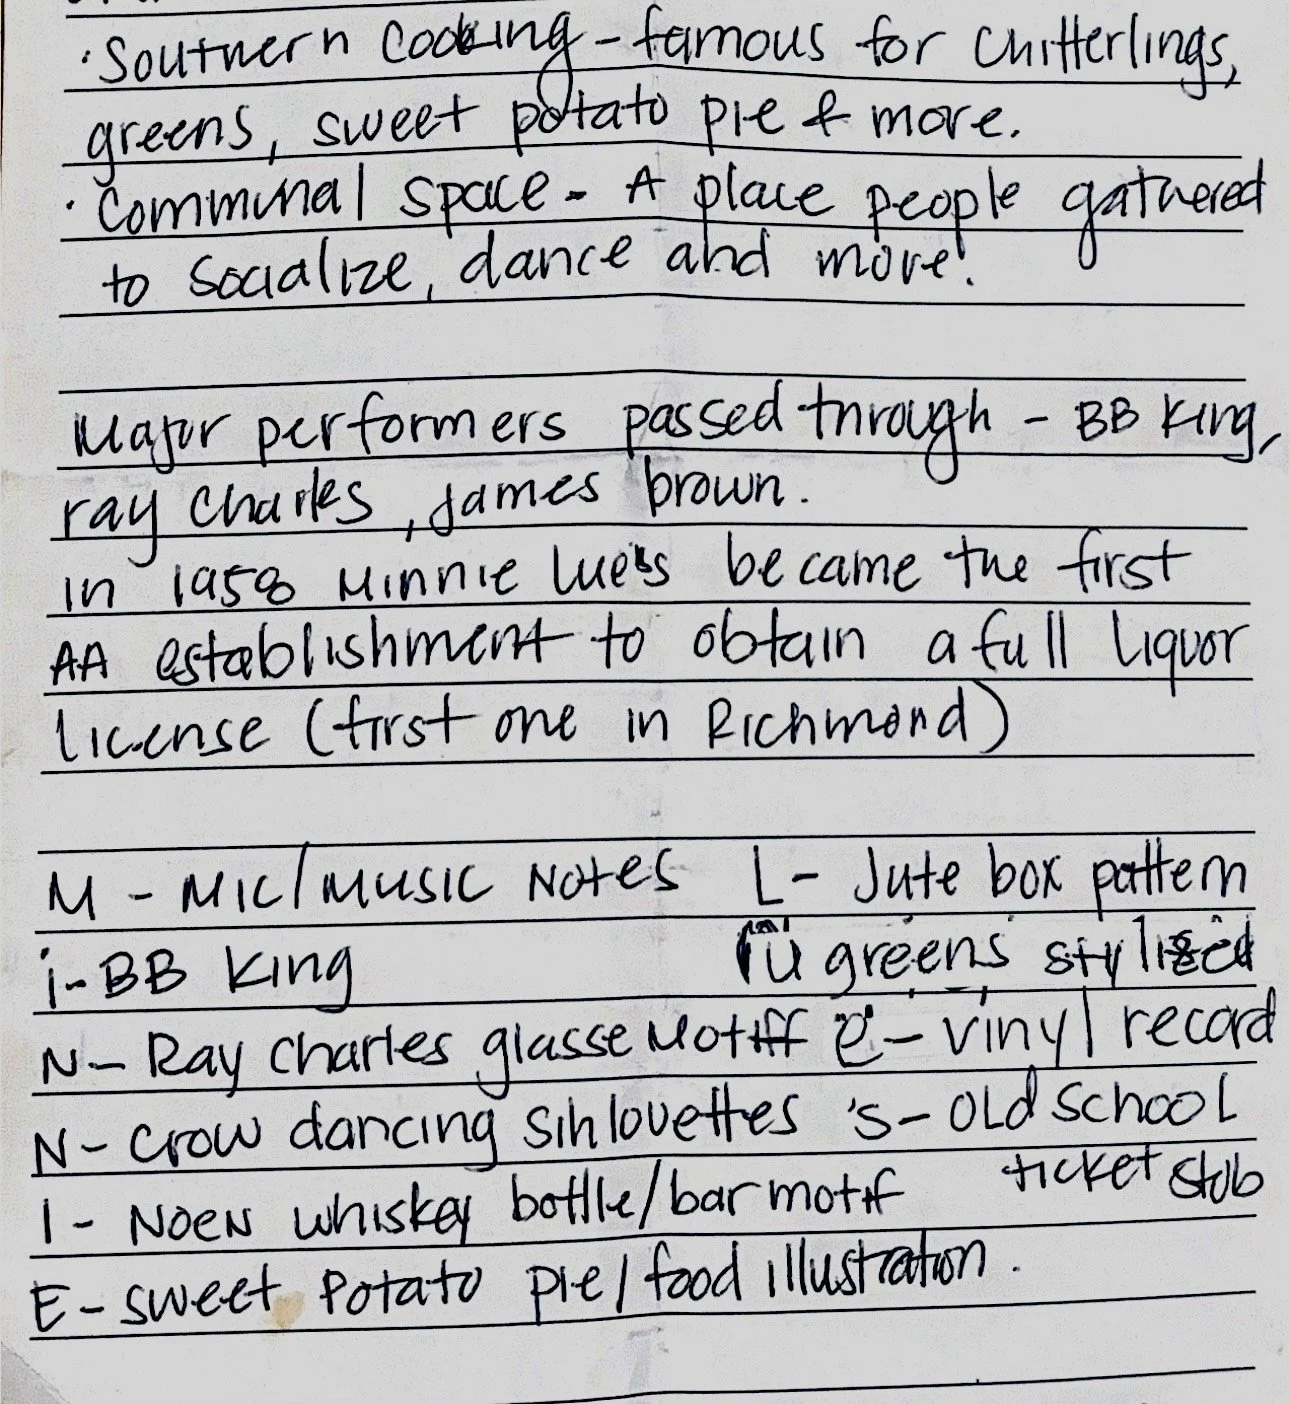 ·Southern Cooking - famous for Chitterlings,
greens, sweet potato pie & more.
·Communal space - A place people gathered
to socialize, dance and more!
Major performers passed through - BB King,
ray Charles, james brown.
in 1958 Minnie lue's became the first
AA establishment to obtain a full liquor
license (first one in Richmond)
M - Mic/music Notes L - Jute box pattern
i - BB King u greens stylized
N - Ray Charles glasse Motiff e - vinyl record
N - Crow dancing Sihlouettes 's - OLd SchooL
ticket stub
I - NOEN whiskey bottle/bar motif
E - sweet Potato pie/food illustration.